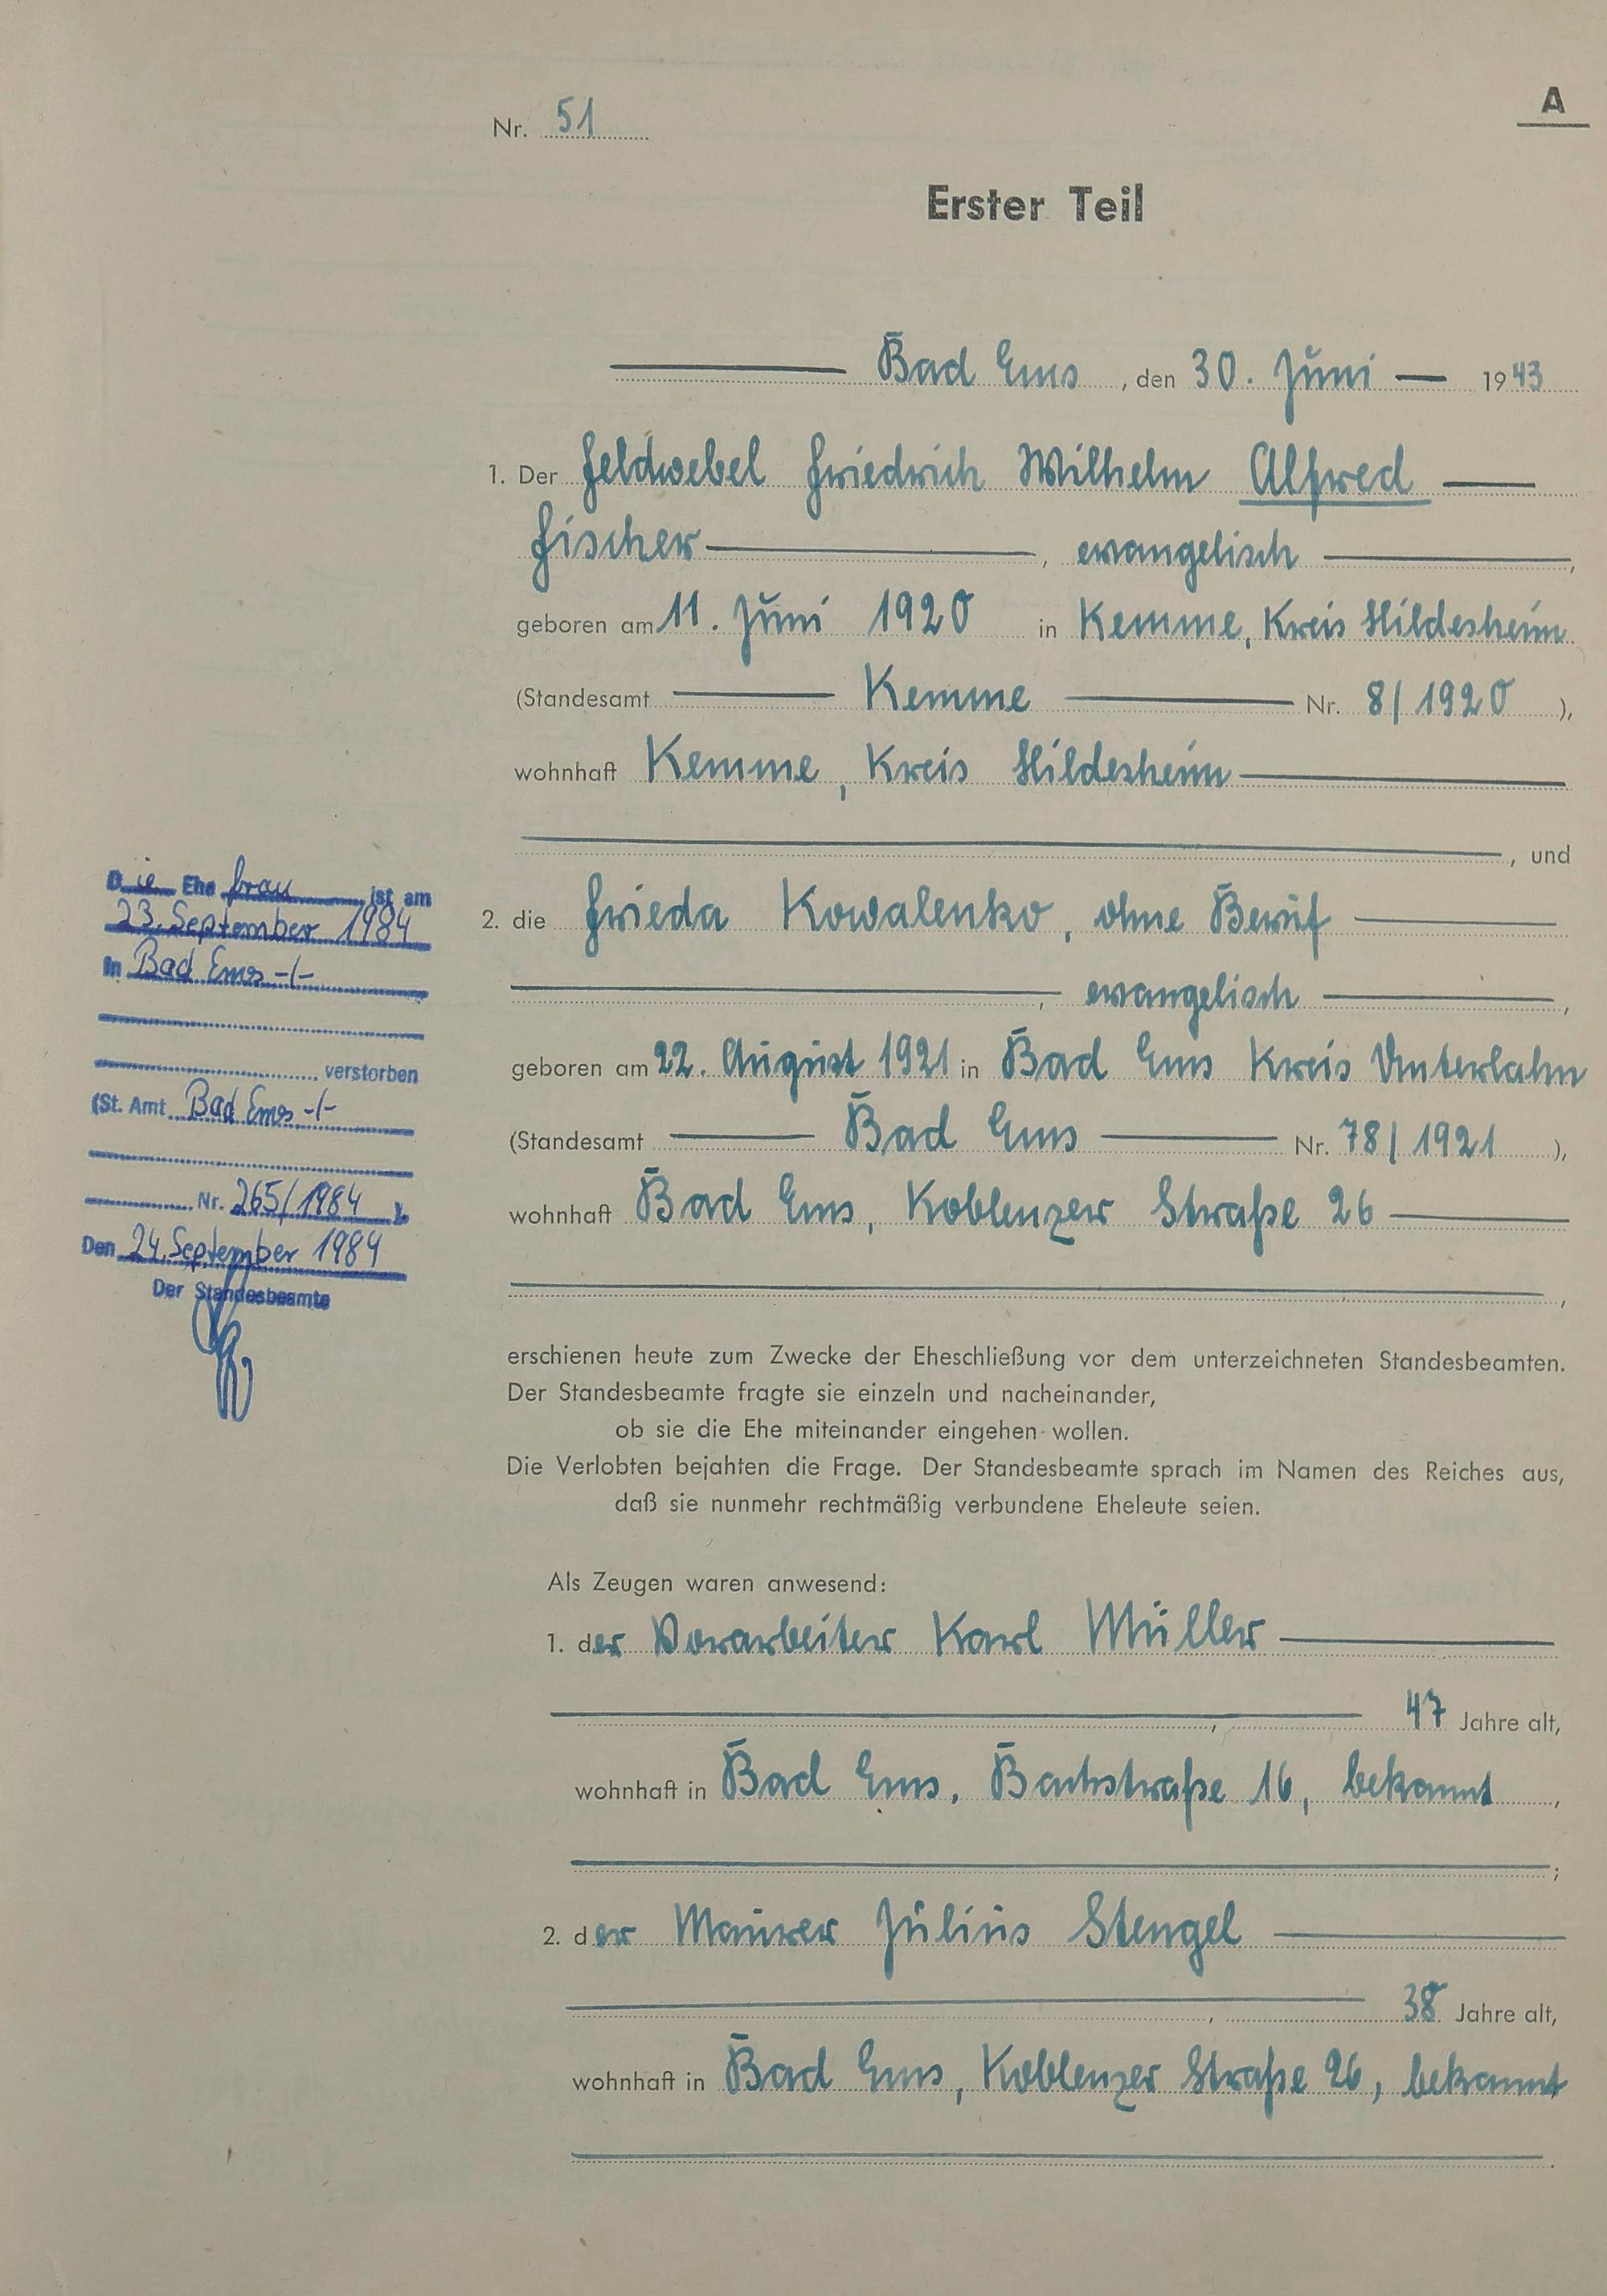 A
Nr. 51
Erster Teil
Bad Ems, den 30. Juni 1943
1. Der Feldwebel Friedrich Wilhelm Alfred
Fischer, evangelisch,
geboren am 11. Juni 1920 in Kemme, Kreis Hildesheim
(Standesamt Kemme Nr. 8/1920),
wohnhaft Kemme, Kreis Hildesheim
, und
2. die Frieda Kowalenko, ohne Beruf
, evangelisch,
geboren am 22. August 1921 in Bad Ems Kreis Unterlahn
(Standesamt Bad Ems Nr. 78/1921),
wohnhaft Bad Ems, Koblenzer Straße 26
,
erschienen heute zum Zwecke der Eheschließung vor dem unterzeichneten Standesbeamten.
Der Standesbeamte fragte sie einzeln und nacheinander,
ob sie die Ehe miteinander eingehen wollen.
Die Verlobten bejahten die Frage. Der Standesbeamte sprach im Namen des Reiches aus,
daß sie nunmehr rechtmäßig verbundene Eheleute seien.
Als Zeugen waren anwesend:
1. der Vorarbeiter Karl Müller
, 47 Jahre alt,
wohnhaft in Bad Ems, Bachstraße 16, bekannt,
;
2. der Maurer Julius Stengel
, 38 Jahre alt,
wohnhaft in Bad Ems, Koblenzer Straße 26, bekannt
.
Die Ehefrau ist am
23. September 1984
in Bad Ems -/-
verstorben
(St. Amt Bad Ems -/-
Nr. 265/1984 ).
Den 24. September 1984
Der Standesbeamte